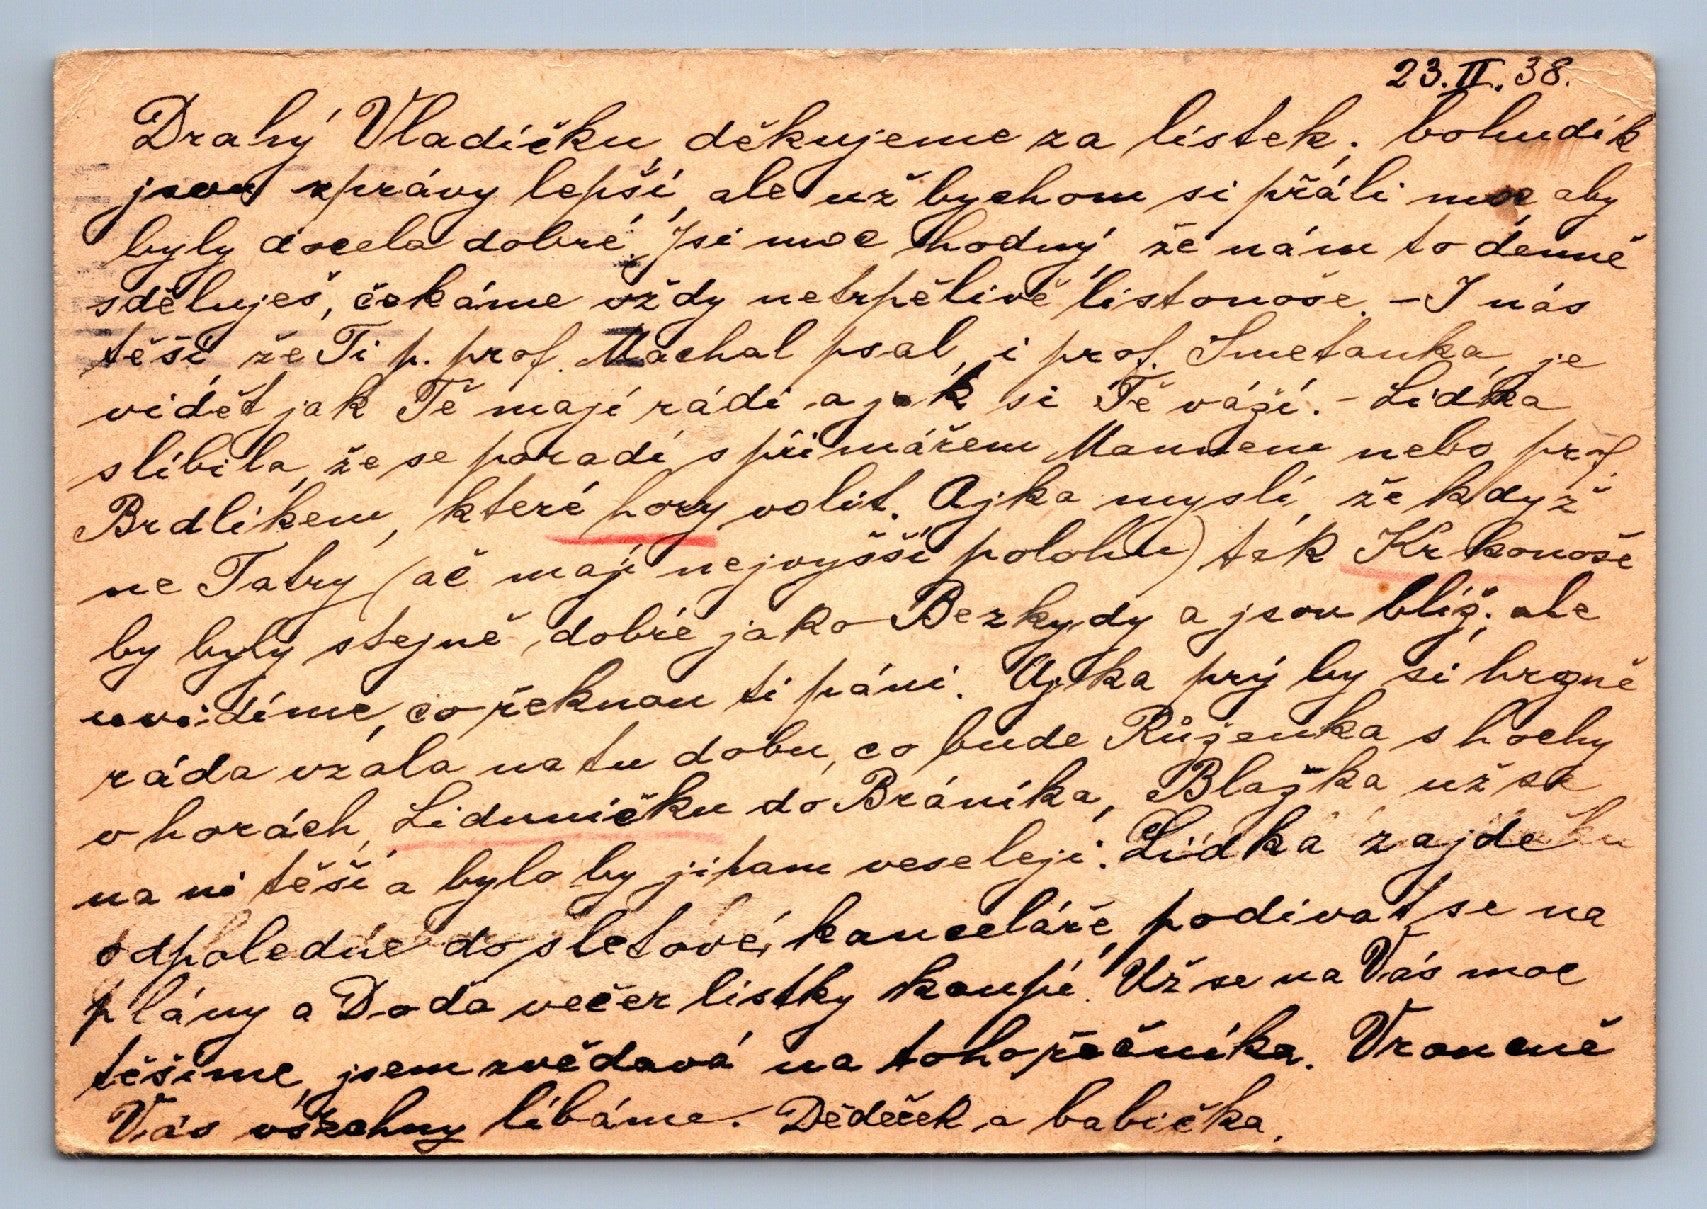 23.II.38.
Drahý Vladíčku, děkujeme za lístek, bohudík
jsou zprávy lepší, ale už bychom si přáli moc aby
byly docela dobré. Jsi moc hodný, že nám to denně
sděluješ, čekáme vždy netrpělivě listonoše. – I nás
těší, že Ti p. prof. Máchal psal, i prof. Smetanka, je
vidět jak Tě mají rádi a jak si Tě váží. – Lidka
slíbila, že se poradí s primářem Mannem nebo prof.
Brdlíkem, které hory volit. Ajka myslí, že když
ne Tatry (ač mají nejvyšší polohu) tak Krkonoše
by byly stejně dobré jako Bezkydy a jsou blíž, ale
uvidíme, co řeknou ti páni. Ajka prý by si hrozně
ráda vzala na tu dobu, co bude Růženka s hochy
v horách, Lidunničku do Bráníka, Blažka už se
na ni těší a bylo by jí tam veseleji. Lidka zajde
odpoledne do sletové kanceláře, podívat se na
plány a Doda večer lístky koupí. Už se na Vás moc
těšíme, jsem zvědavá na toho řečníka. Vroucně
Vás všechny líbáme. Dědeček a babička.